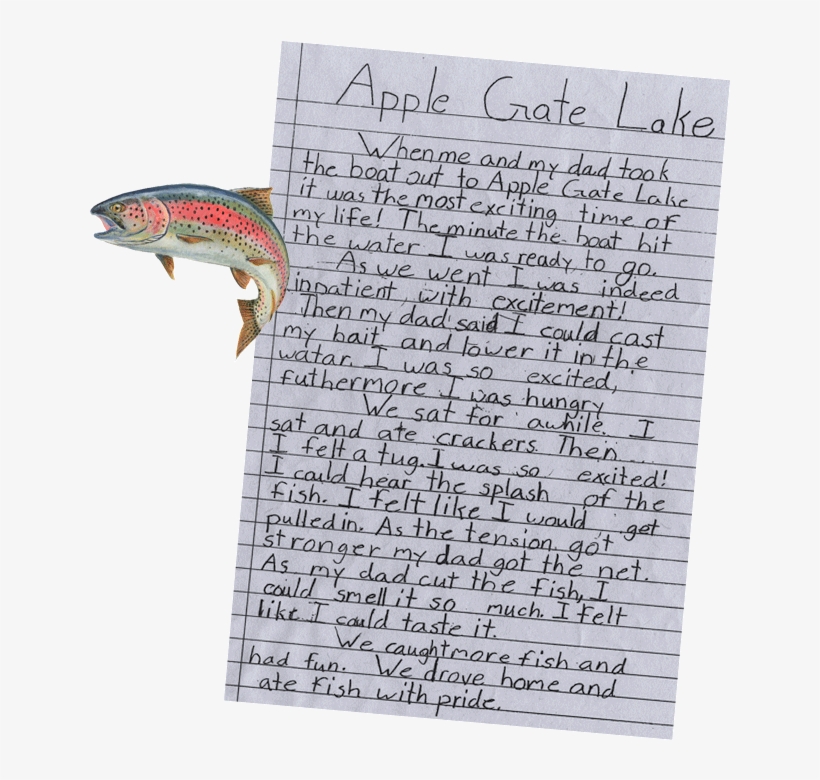 Apple Gate Lake
When me and my dad took
the boat out to Apple Gate Lake
it was the most exciting time of
my life! The minute the boat hit
the water I was ready to go.
As we went I was indeed
inpatient with excitement!
Then my dad said I could cast
my bait and lower it in the
watar. I was so excited,
futhermore I was hungry
We sat for awhile. I
sat and ate crackers. Then
I felt a tug. I was so excited!
I could hear the splash of the
fish. I felt like I would get
pulled in. As the tension got
stronger my dad got the net.
As my dad cut the fish, I
could smell it so much. I felt
like I could taste it.
We caught more fish and
had fun. We drove home and
ate fish with pride.